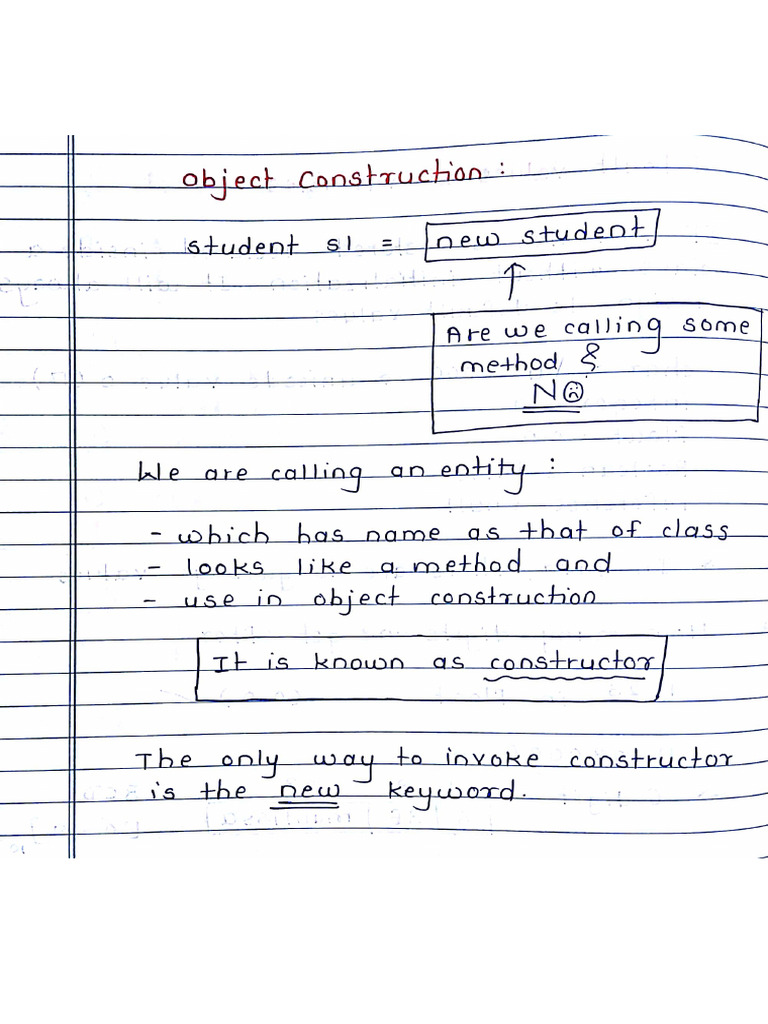 Object Construction :
student s1 = new student
Are we calling some
method &
NO
We are calling an entity :
- which has name as that of class
- looks like a method and
- use in object construction
It is known as constructor
The only way to invoke constructor
is the new keyword.